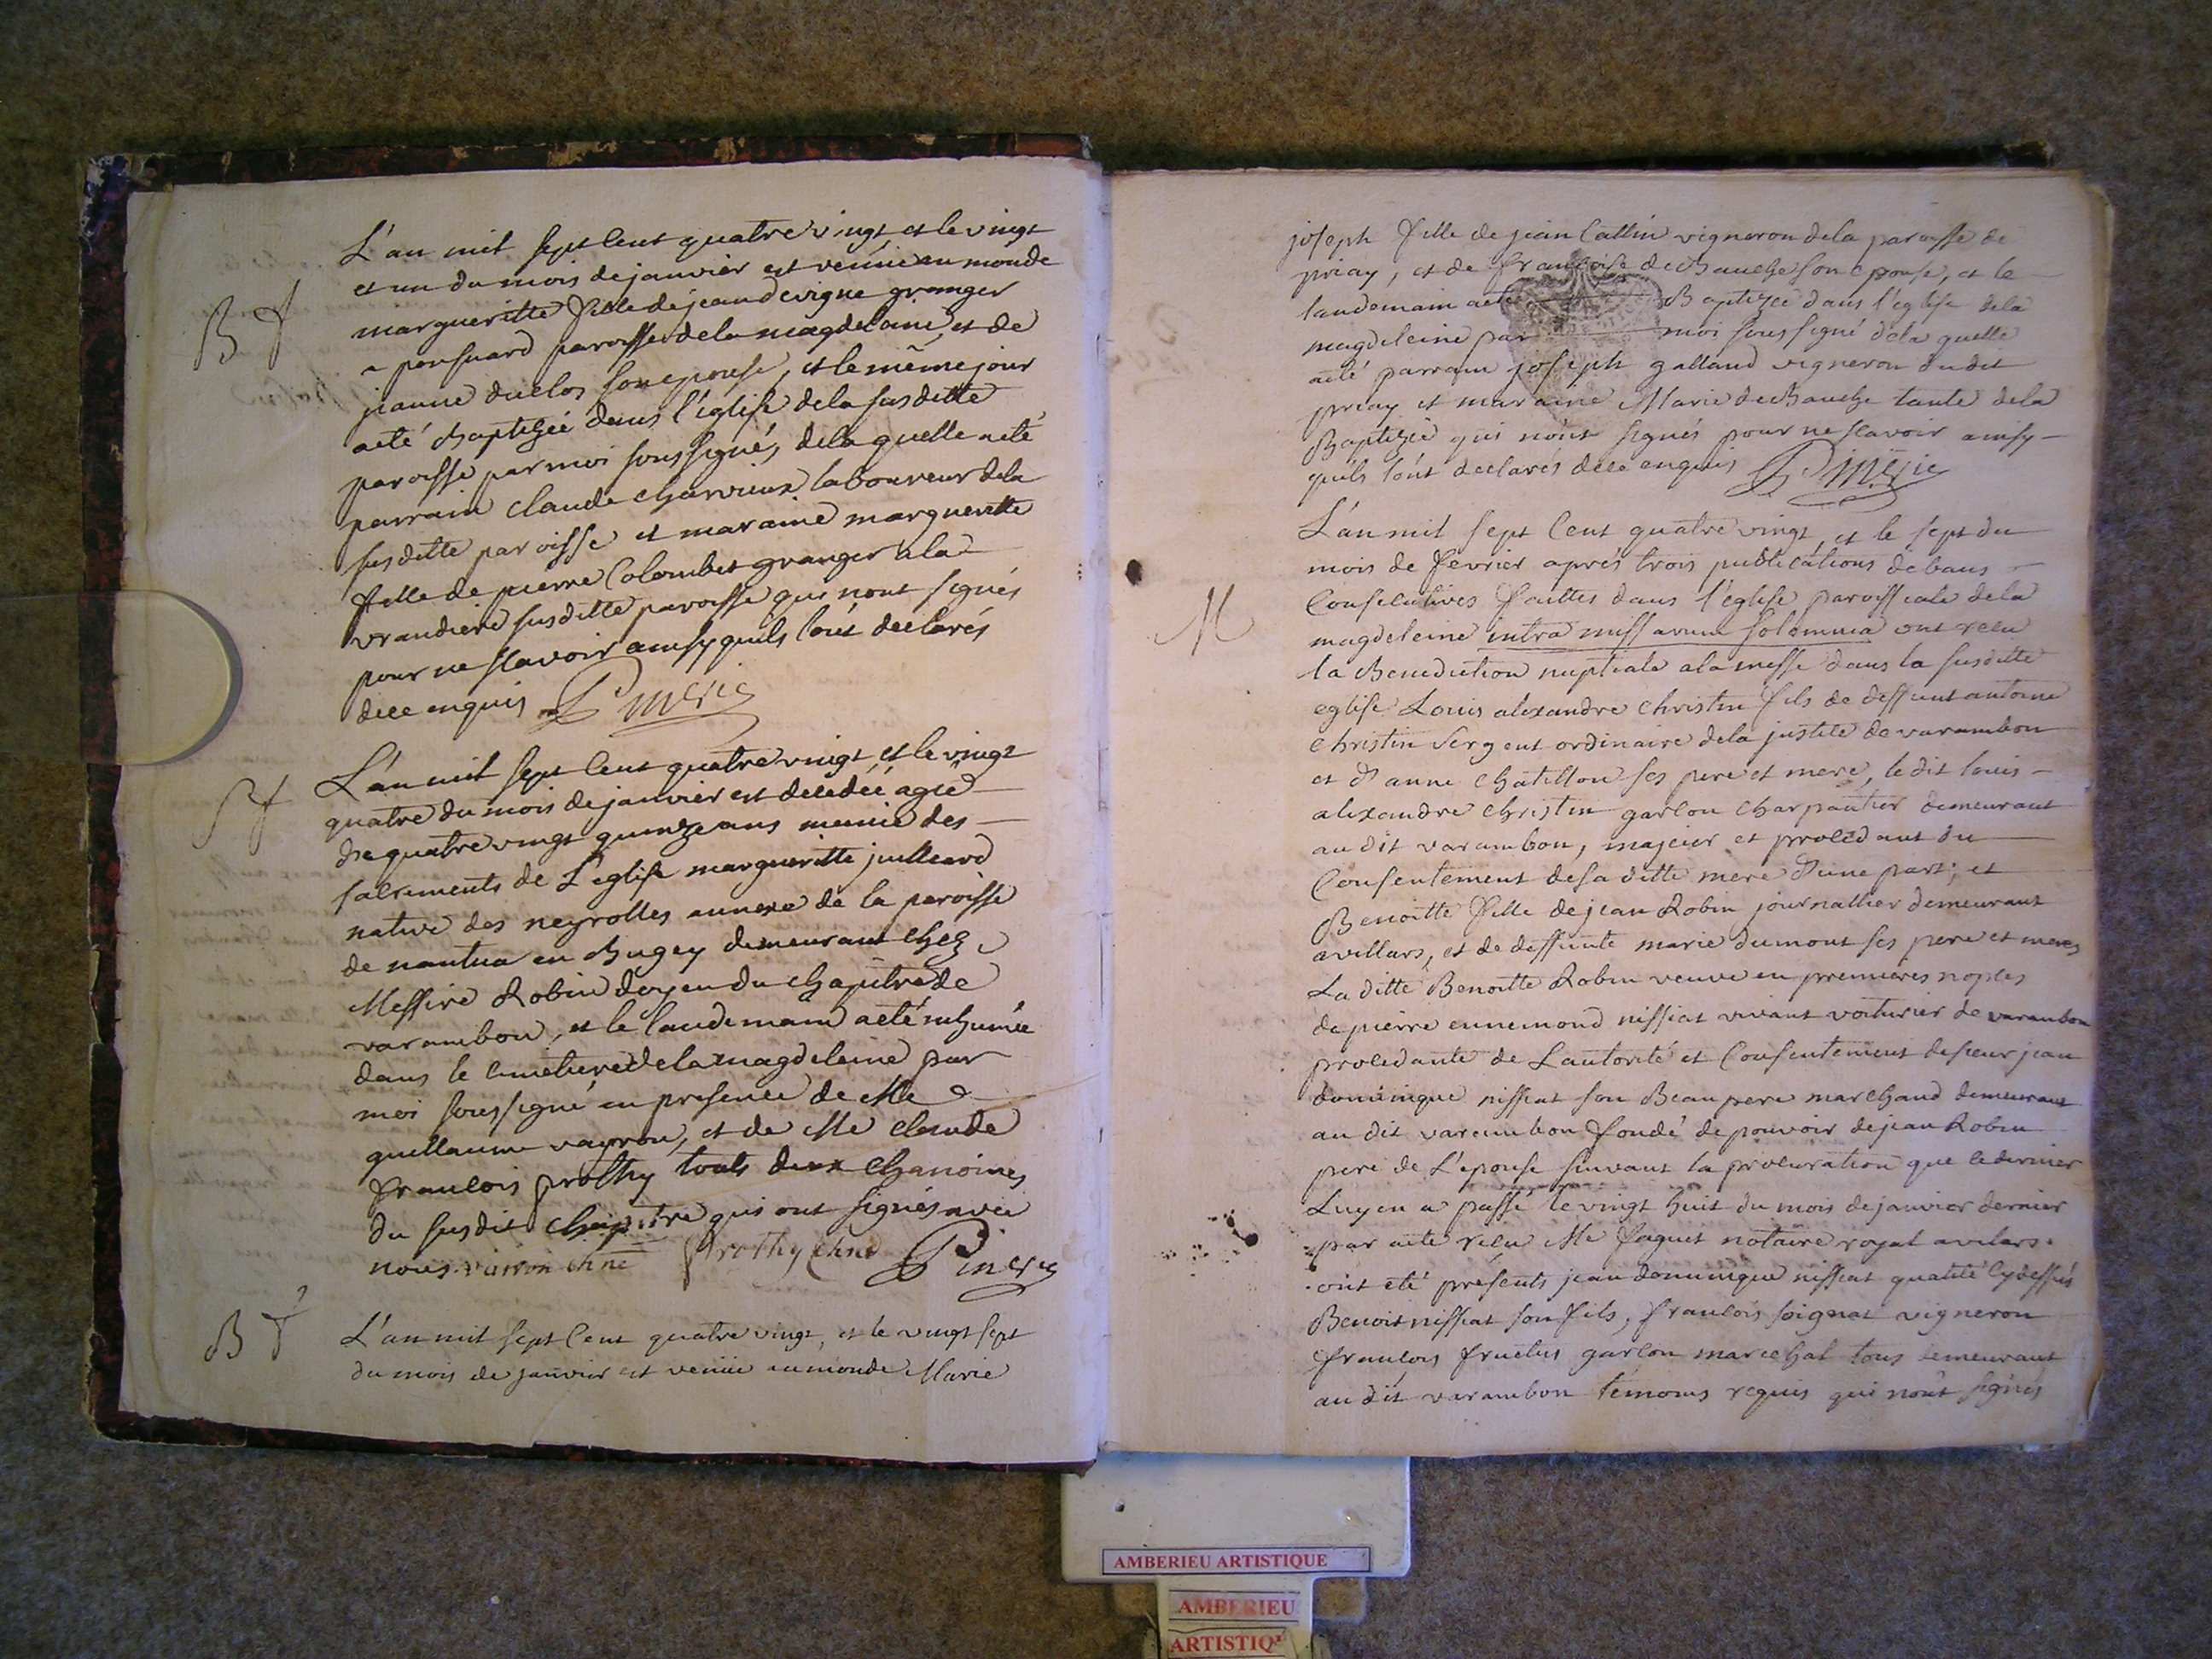 L'an mil sept cent quatre vingt et le vingt
et un du mois de janvier est venüe au monde
B f
margueritte fille de jean devigne granger
a ponsuard paroisse de la magdelaine, et de
jeanne duclos son epouse, et le même jour
a eté baptizéé dans l'église de la susditte
paroisse par moi soussigné, de la quelle a eté
parrain claude charvieux laboureur de la
susditte paroisse et maraine margueritte
fille de pierre Colombet granger a la
vrandiere susditte paroisse qui n'ont signés
pour ne scavoir ainsy quils l'ont declarés
dece enquis Pinerie
S f
L'an mil sept cent quatre vingt et le vingt
quatre du mois de janvier est decedéé agéé
de quatre vingt quinze ans munie des
sacrements de L'eglise margueritte juilleard
native des neyrolles annexe de la paroisse
de nantua en Bugey demeurant chez
Messire Robin doyen du chapitre de
varambon, et le landemain a eté inhumée
dans le cimetiere de la magdeleine par
moi soussigné en presence de Me
guillaume vayron, et de Me claude
francois prothy touts deux chanoines
du susdit chapitre qui ont signés avec
nous vairon chne Prothy chne Pinerie
B f
L'an mil sept cent quatre vingt, et le vingt sept
du mois de janvier est venüe au monde Marie
joseph fille de jean Cattin vigneron de la paroisse de
priay, et de francoise dechauche son epouse, et le
landemain a eté Baptizéé dans l'eglise de la
magdeleine par moi soussigné de la quelle
a eté parrain joseph galland vigneron du dit
priay et maraine Marie dechauche tante de la
Baptizéé qui n'ont signés pour ne scavoir ainsy
quils l'ont declarés dece enquis Pinerie
L'an mil sept cent quatre vingt, et le sept du
mois de fevrier aprés trois publications de bans
M
Consecutives faittes dans l'église paroissiale de la
magdeleine intra missarum solemnia ont recu
la Benediction nuptiale a la messe dans la susditte
eglise Louis alexandre christin fils de deffunt antoine
christin sergent ordinaire de la justice de varambon
et d'anne chatillon ses pere et mere, le dit louis
alexandre christin garcon charpantier demeurant
au dit varambon, majeur et procedant du
Consentement de sa ditte mere d'une part; et
Benoitte fille de jean Robin journallier demeurant
a villars, et de deffunte marie dumont ses pere et mere
La ditte Benoitte Robin veuve en premieres noces
de pierre ennemond nissiat vivant voiturier de varambon
procedante de L'autorité et Consentement de sieur jean
dominique nissiat son Beau pere marchand demeurant
au dit varambon fondé de pouvoir de jean Robin
pere de L'epouse suivant la procuration que ce dernier
Luy en a passé le vingt huit du mois de janvier dernier
par acte recu Me faguet notaire royal a vilars.
ont eté presents jean dominique nissiat qualité cy dessus
Benoit nissiat son fils, francois soignat vigneron
francois fructus garcon marechal tous demeurant
au dit varambon temoins requis qui n'ont signés
AMBERIEU ARTISTIQUE
AMBERIEU
ARTISTIQ